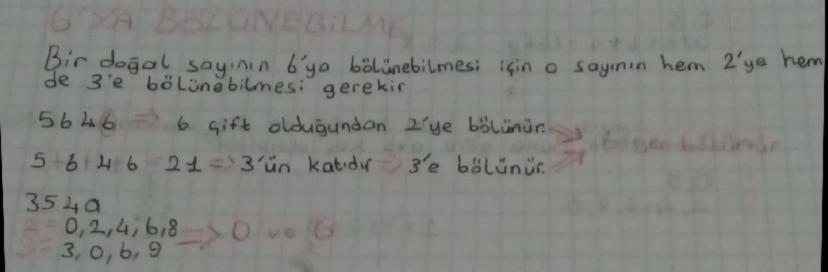 6'YA BÖLÜNEBİLME
Bir doğal sayının 6'ya bölünebilmesi için o sayının hem 2'ye hem
de 3'e bölünebilmesi gerekir
5646 => 6 çift olduğundan 2'ye bölünür. => 6'ya bölünür
5+6+4+6=21 => 3'ün katıdır => 3'e bölünür.
354a
2 = 0,2,4,6,8 => 0 ve 6
3 = 3,0,6,9